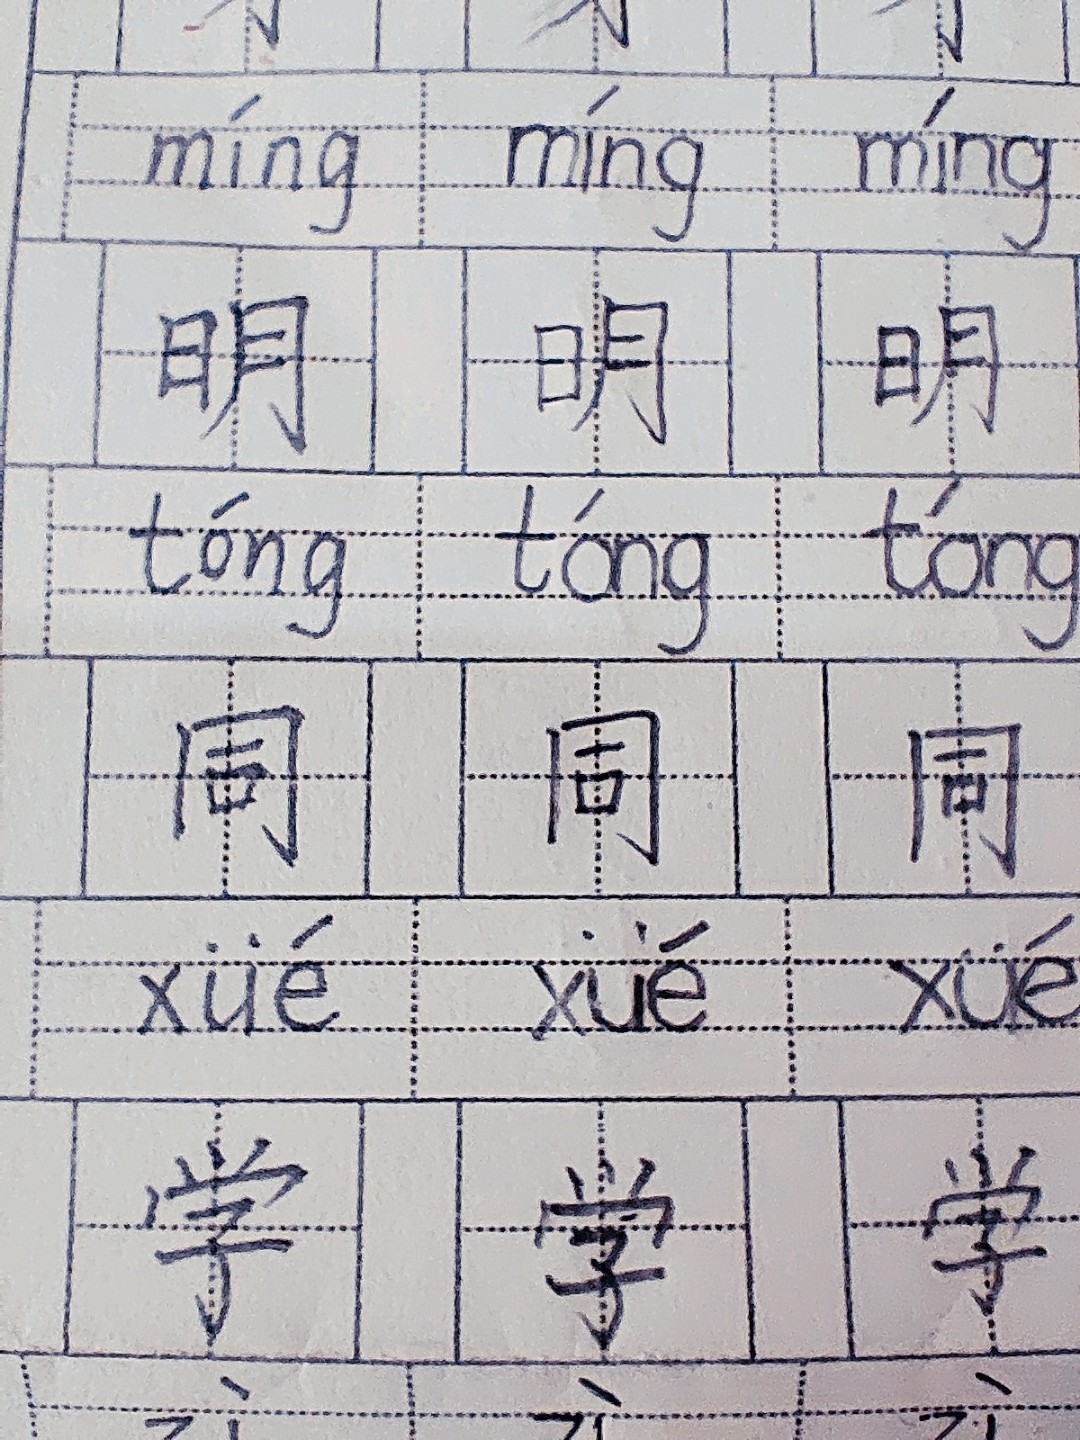 míng míng míng
明 明 明
tóng tóng tóng
同 同 同
xüé xüé xüé
学 学 学